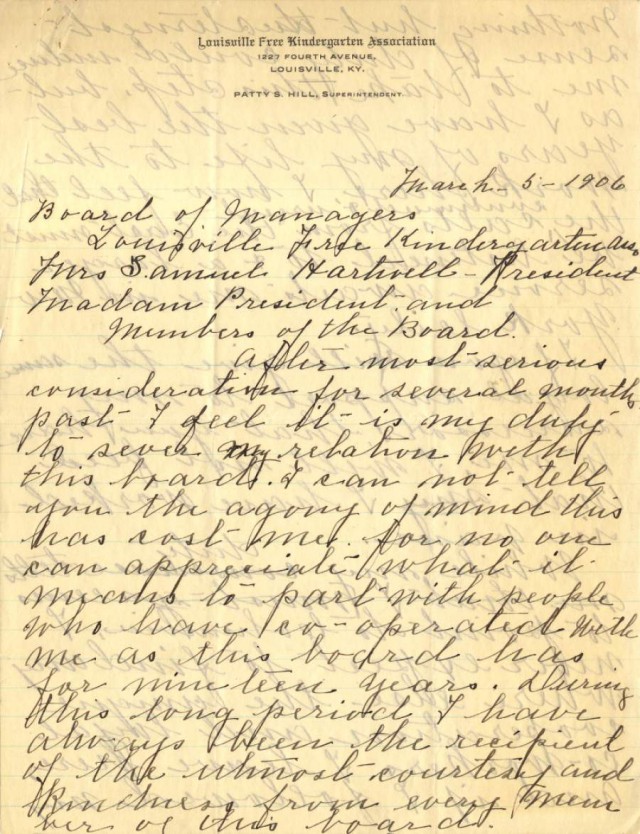 Louisville Free Kindergarten Association
1227 FOURTH AVENUE,
LOUISVILLE, KY.
PATTY S. HILL, SUPERINTENDENT
March - 5 - 1906
Board of Managers
Louisville Free Kindergarten Ass.
Mrs Samuel Hartwell - President
Madam President - and
Members of the Board.
After most serious
consideration for several months
past I feel it is my duty
to sever my relation with
this board. I can not tell
you the agony of mind this
has cost me. for no one
can appreciate what it
means to part with people
who have co-operated with
me as this board has
for nineteen years. During
this long period I have
always been the recipient
of the utmost courtesy and
kindness from every mem
ber of this board.